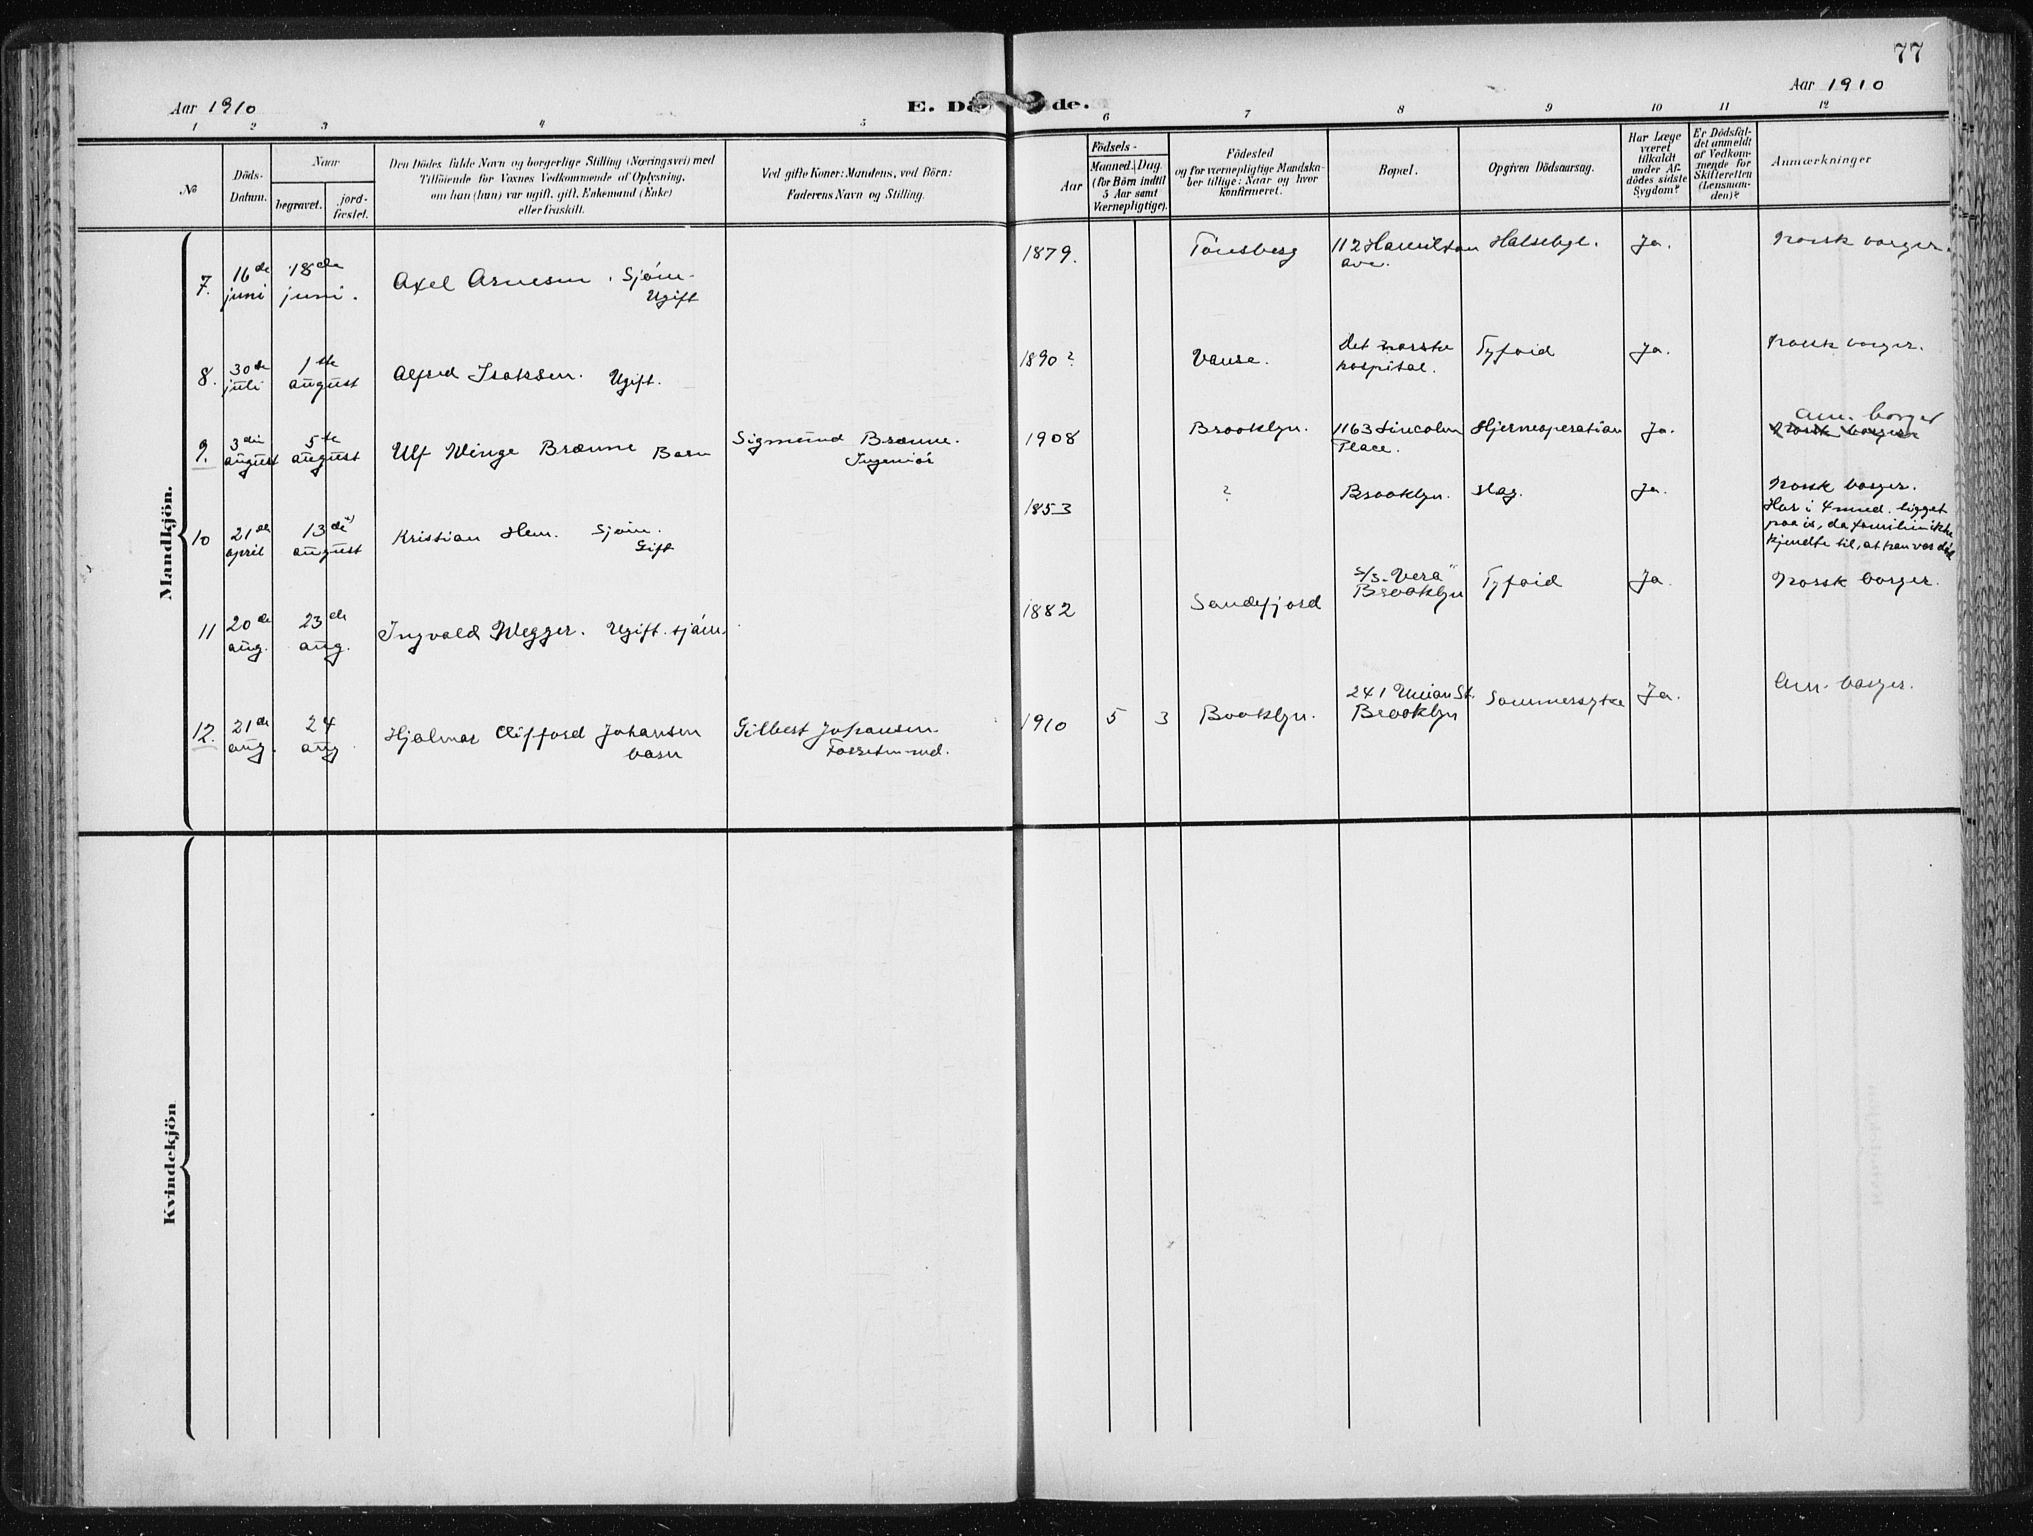 77
Aar 1910
E. Dö
de.
Aar 1910
1 2 3 4 5
6 7 8 9 10 11 12
No
Döds-
Datum.
Naar
begravet.
jord-
fæstet.
Den Dödes fulde Navn og borgerlige Stilling (Næringsvei) med
Tilföiende for Voxnes Vedkommende af Oplysning,
om han (hun) var ugift, gift, Enkemand (Enke)
eller fraskilt.
Ved gifte Koner: Mandens, ved Börn:
Faderens Navn og Stilling.
Födsels-
Aar
Maaned. Dag
(for Börn indtil
5 Aar samt
Værnepligtige).
Födested
og for værnepligtige Mandska-
ber tillige: Naar og hvor
konfirmeret.
Bopæl.
Opgiven Dödsaarsag.
Har Læge
været
tilkaldt
under Af-
dödes sidste
Sygdom?
Er Dödsfal-
det anmeldt
af Vedkom-
mende for
Skifteretten
(Lensman-
den)?
Anmærkninger
Mandkjön.
7. 16de juni 18de juni. Axel Arnesen. Sjøm. Ugift
1879. Tønsberg 112 Hamilton ave. Halsebyl. Ja. Norsk borger.
8. 30de juli 1ste august Alfred Isaksen. Ugift.
1890? Vanse. Det norske hospital. Tyfoid Ja. Norsk borger.
9. 3die august 5te august Ulf Winge Brænne Barn Sigmund Brænne. Ingeniør
1908 Brooklyn. 1163 Lincoln Place. Hjerneoperation Ja. Am. borger
Norsk borger
10 21de april 13de august Kristian Hem. Sjøm. Gift
1853 ? Brooklyn. Slag. Ja. Norsk borger.
Har i 4 mnd. ligget
paa is, da familien ikke
kjendte til, at han var død
11 20de aug. 23de aug. Ingvald Wegger. Ugift. sjøm.
1882 Sandefjord S/S "Vera" Brooklyn Tyfoid Ja. Norsk borger.
12. 21de aug. 24 aug. Hjalmar Clifford Johansen barn Gilbert Johansen
1910 5 3 Booklyn. 241 Union St. Brooklyn Sommersyke Ja. Am. borger.
Kvindekjön